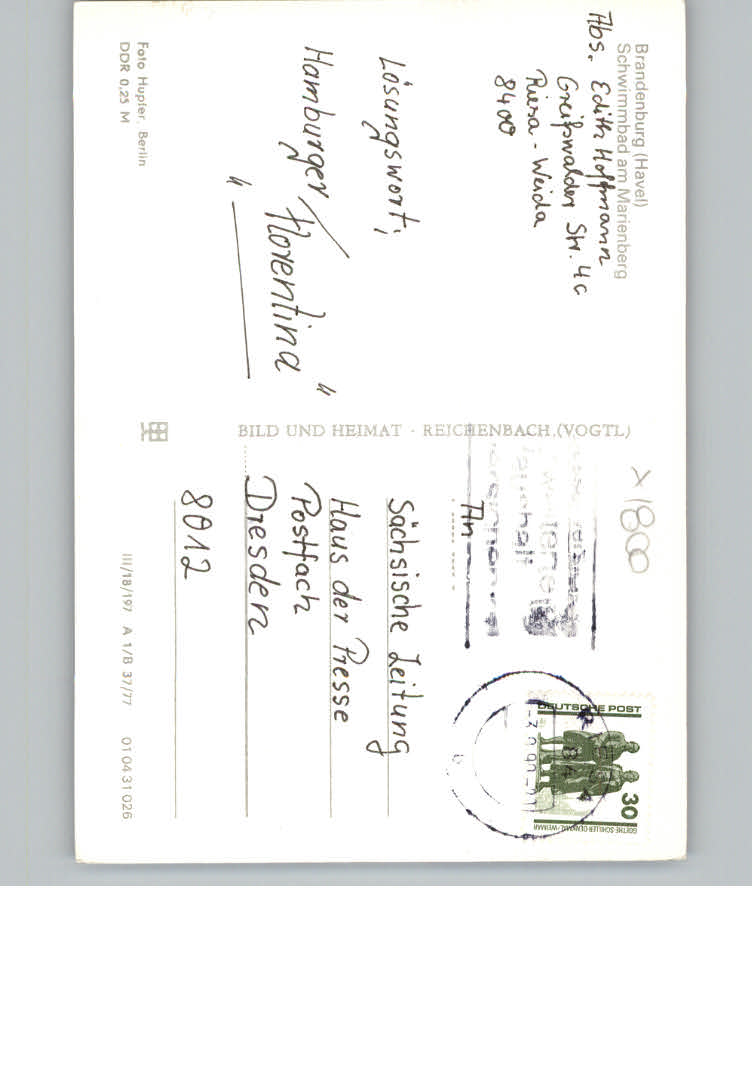 Brandenburg (Havel)
Schwimmbad am Marienberg
Abs. Edith Hoffmann
Greifswalder Str. 4c
Riesa - Weida
8400
Lösungswort:
Hamburger/Florentina
"
"
Foto Hupfer, Berlin
DDR 0,25 M
BILD UND HEIMAT · REICHENBACH (VOGTL)
x 1800
DEUTSCHE POST
30
GOETHE-SCHILLER-DENKMAL/WEIMAR
An
Sächsische Zeitung
Haus der Presse
Postfach
Dresden
8012
III/18/197 A 1/B 37/77 01 04 31 026